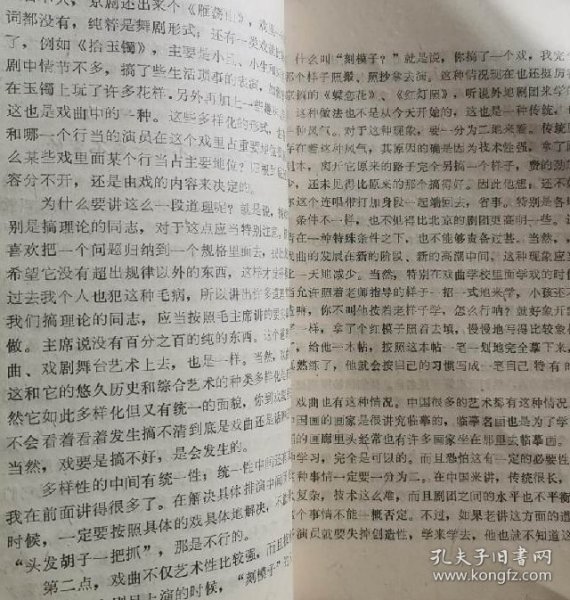 京剧还出来个《雁荡山》，戏
词都没有，纯粹是舞剧形式；还有一类戏
了，例如《拾玉镯》，主要是小丑、小生
剧中情节不多，搞了些生活琐事的表演，
在玉镯上玩了许多花样。另外再加上一些
这也是戏曲中的一种。这些多样化的形式，
和哪一个行当的演员在这个戏里占重要地位
么某些戏里面某个行当占主要地位？
容分不开，还是由戏的内容来决定的。
为什么要讲这么一段道理呢？就是说，
别是搞理论的同志，对于这点应当特别注意，
喜欢把一个问题归纳到一个规格里面去，
希望它没有超出规律以外的东西，这样才
过去我个人也犯这种毛病，所以讲出许多
我们搞理论的同志，应当按照毛主席讲的
做。主席说没有百分之百的纯的东西。这个
曲、戏剧舞台艺术上去，也是一样。当然，
这和它的悠久历史和综合艺术的种类多样化
然它如此多样化但又有统一的面貌，你到
不会看着看着发生搞不清到底是戏曲还是话剧
当然，戏要是搞不好，是会发生的。
多样性的中间有统一性；统一性中间
我在前面讲得很多了。在解决具体排演中间
时候，一定要按照具体的戏具体地解决，不
“头发胡子一把抓”，那是不行的。
第二点，戏曲不仅艺术性比较强，而且
上演的时候，“刻模子”
什么叫“刻模子？”就是说，你搞了一个戏，我完
那个样子照搬、照抄拿去演。这种情况现在也还挺厉害
搞的《蝶恋花》、《红灯照》，听说外地剧团来学
这种做法也不是从今天开始的，这也是一种传统，
一种风气。对于这种现象，要一分为二地来看。传统
存在着这种风气，其原因的确是因为技术性强。拿了
本，离开它原来的路子完全另搞一个样子，费的劲
，还未见得比原来的那个搞得好。因此他想，还不
那个连唱带打加身段一起端回去，省事。特别是各
条件不一样，也不见得比北京的剧团更高明一些。
在一种特殊条件之下，也不能够责备过甚。当然，
曲的发展在新的阶段、新的高潮中间，这种现象应
一天地减少。当然，特别在戏曲学校里面学戏的时
允许照着老师指导的样子一招一式地来学，小孩还不
嘛，你不叫他按着老样子学，怎么行呐？就好象开
一样，拿了个红模子照着去填，慢慢地写得比较象
，给他一本帖，按照这本帖一笔一划地完全摹下来，
熟练了，他就会按自己的习惯写成一笔自己特有的
戏曲也有这种情况。中国很多的艺术都有这种情况。
国画的画家是很讲究临摹的，临摹名画也是为了学
的画廊里头经常也有许多画家坐在那里去临摹画。
学习，完全是可以的。而且恐怕这有一定的必要性
种事情一定要一分为二。在中国来讲，传统很长，
复杂，技术这么难，而且剧团之间的水平也不平衡
个事情不能一概否定。不过，如果老讲这方面的道
演员就要失掉创造性，学来学去，他也就不知道这
孔夫子旧书网
www.kongfz.com